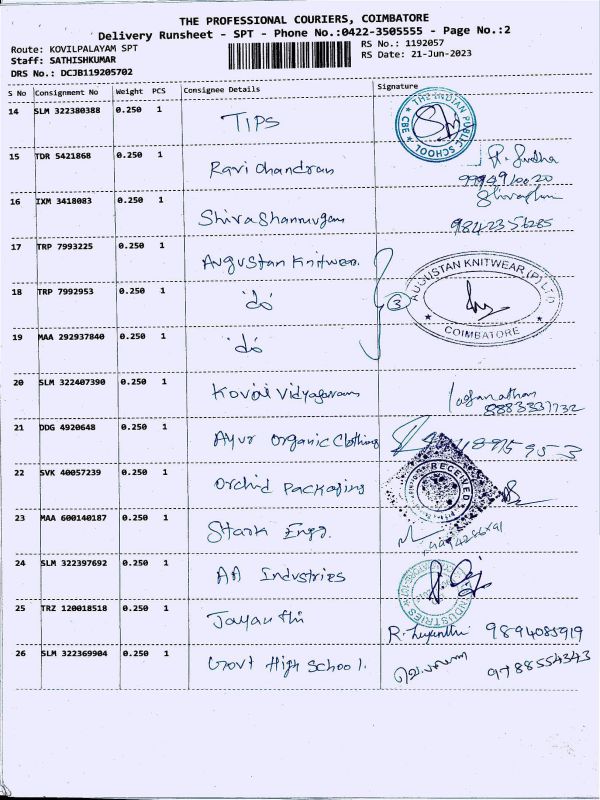 THE PROFESSIONAL COURIERS, COIMBATORE
Delivery Runsheet - SPT - Phone No.:0422-3505555 - Page No.:2
Route: KOVILPALAYAM SPT
RS No.: 1192057
Staff: SATHISHKUMAR
RS Date: 21-Jun-2023
DRS No.: DCJB119205702
S No Consignment No Weight PCS Consignee Details Signature
14 SLM 322380388 0.250 1 TIPS
THE INDIAN PUBLIC SCHOOL
★ CBE ★
15 TDR 5421868 0.250 1 Ravi chandran
16 IXM 3418083 0.250 1 Shiva Shanmugam
9842356285
17 TRP 7993225 0.250 1 Augustan Knitwear.
18 TRP 7992953 0.250 1 'do'
3
AUGUSTAN KNITWEAR (P) LTD
★ COIMBATORE ★
19 MAA 292937840 0.250 1 'do'
20 SLM 322407390 0.250 1 Kovai Vidyasram
8883337732
21 DDG 4920648 0.250 1 Ayur Organic Clothing
22 SVK 40057239 0.250 1 Orchid Packaging
RECEIVED
23 MAA 600140187 0.250 1 Stark Engg.
24 SLM 322397692 0.250 1 AA Industries
INDUSTRIES
25 TRZ 120018518 0.250 1 Jayanthi
9894085919
26 SLM 322369904 0.250 1 Govt High School.
9788554343